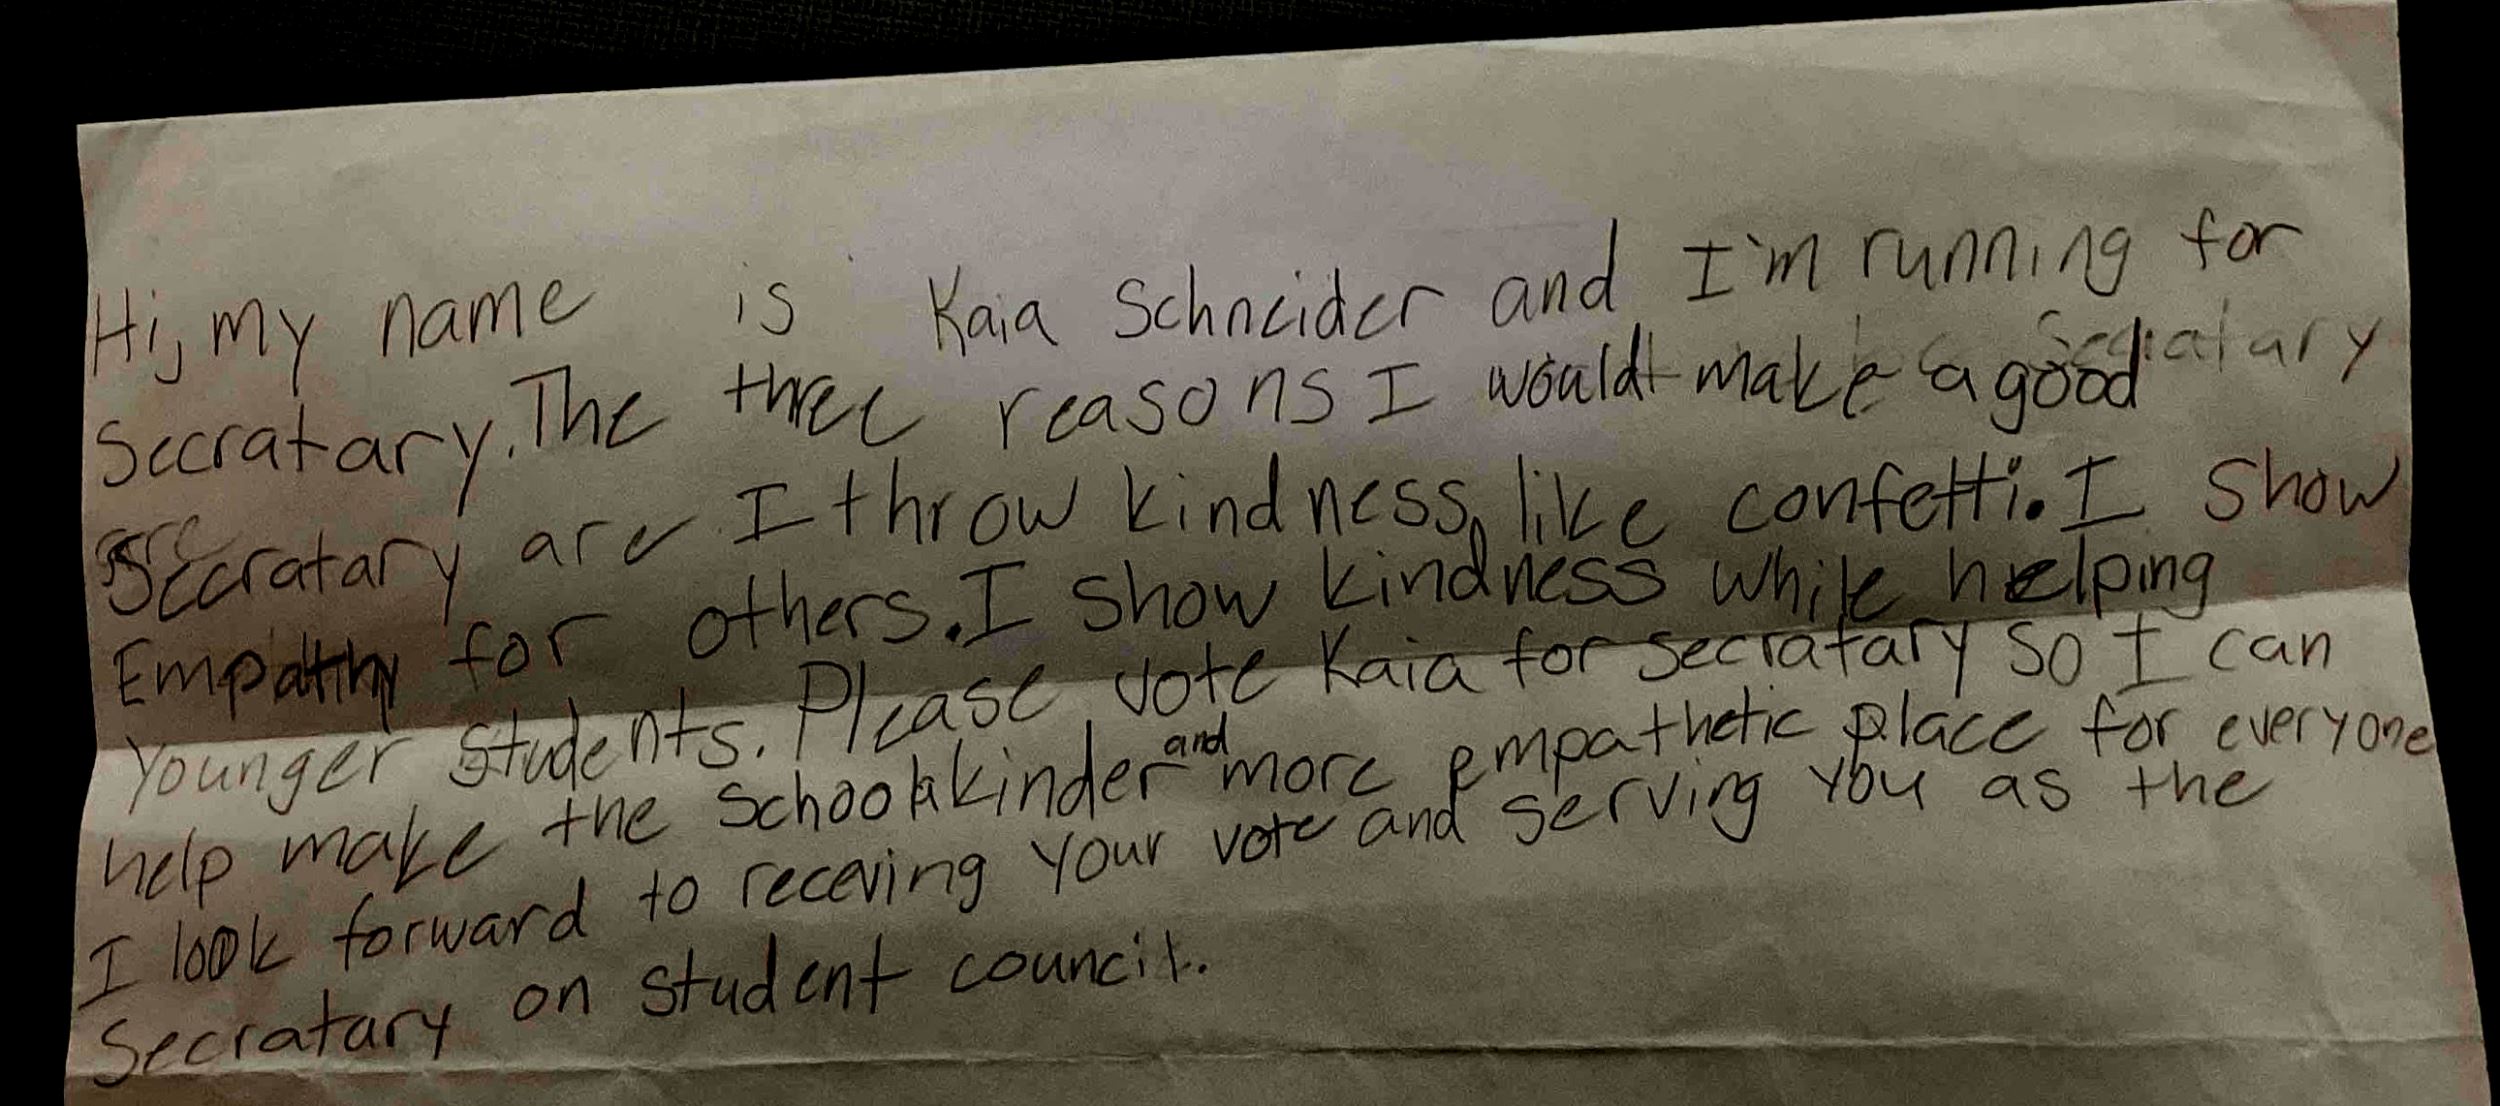 Hi, my name is Kaia Schneider and I'm running for
Secratary. The three reasons I would make a good
Secratary are I throw kindness, like confetti. I show
Empathy for others. I show kindness while helping
Younger students. Please vote Kaia for secratary so I can
help make the school kinder and more empathetic place for everyone
I look forward to receving your vote and serving you as the
Secratary on student council.